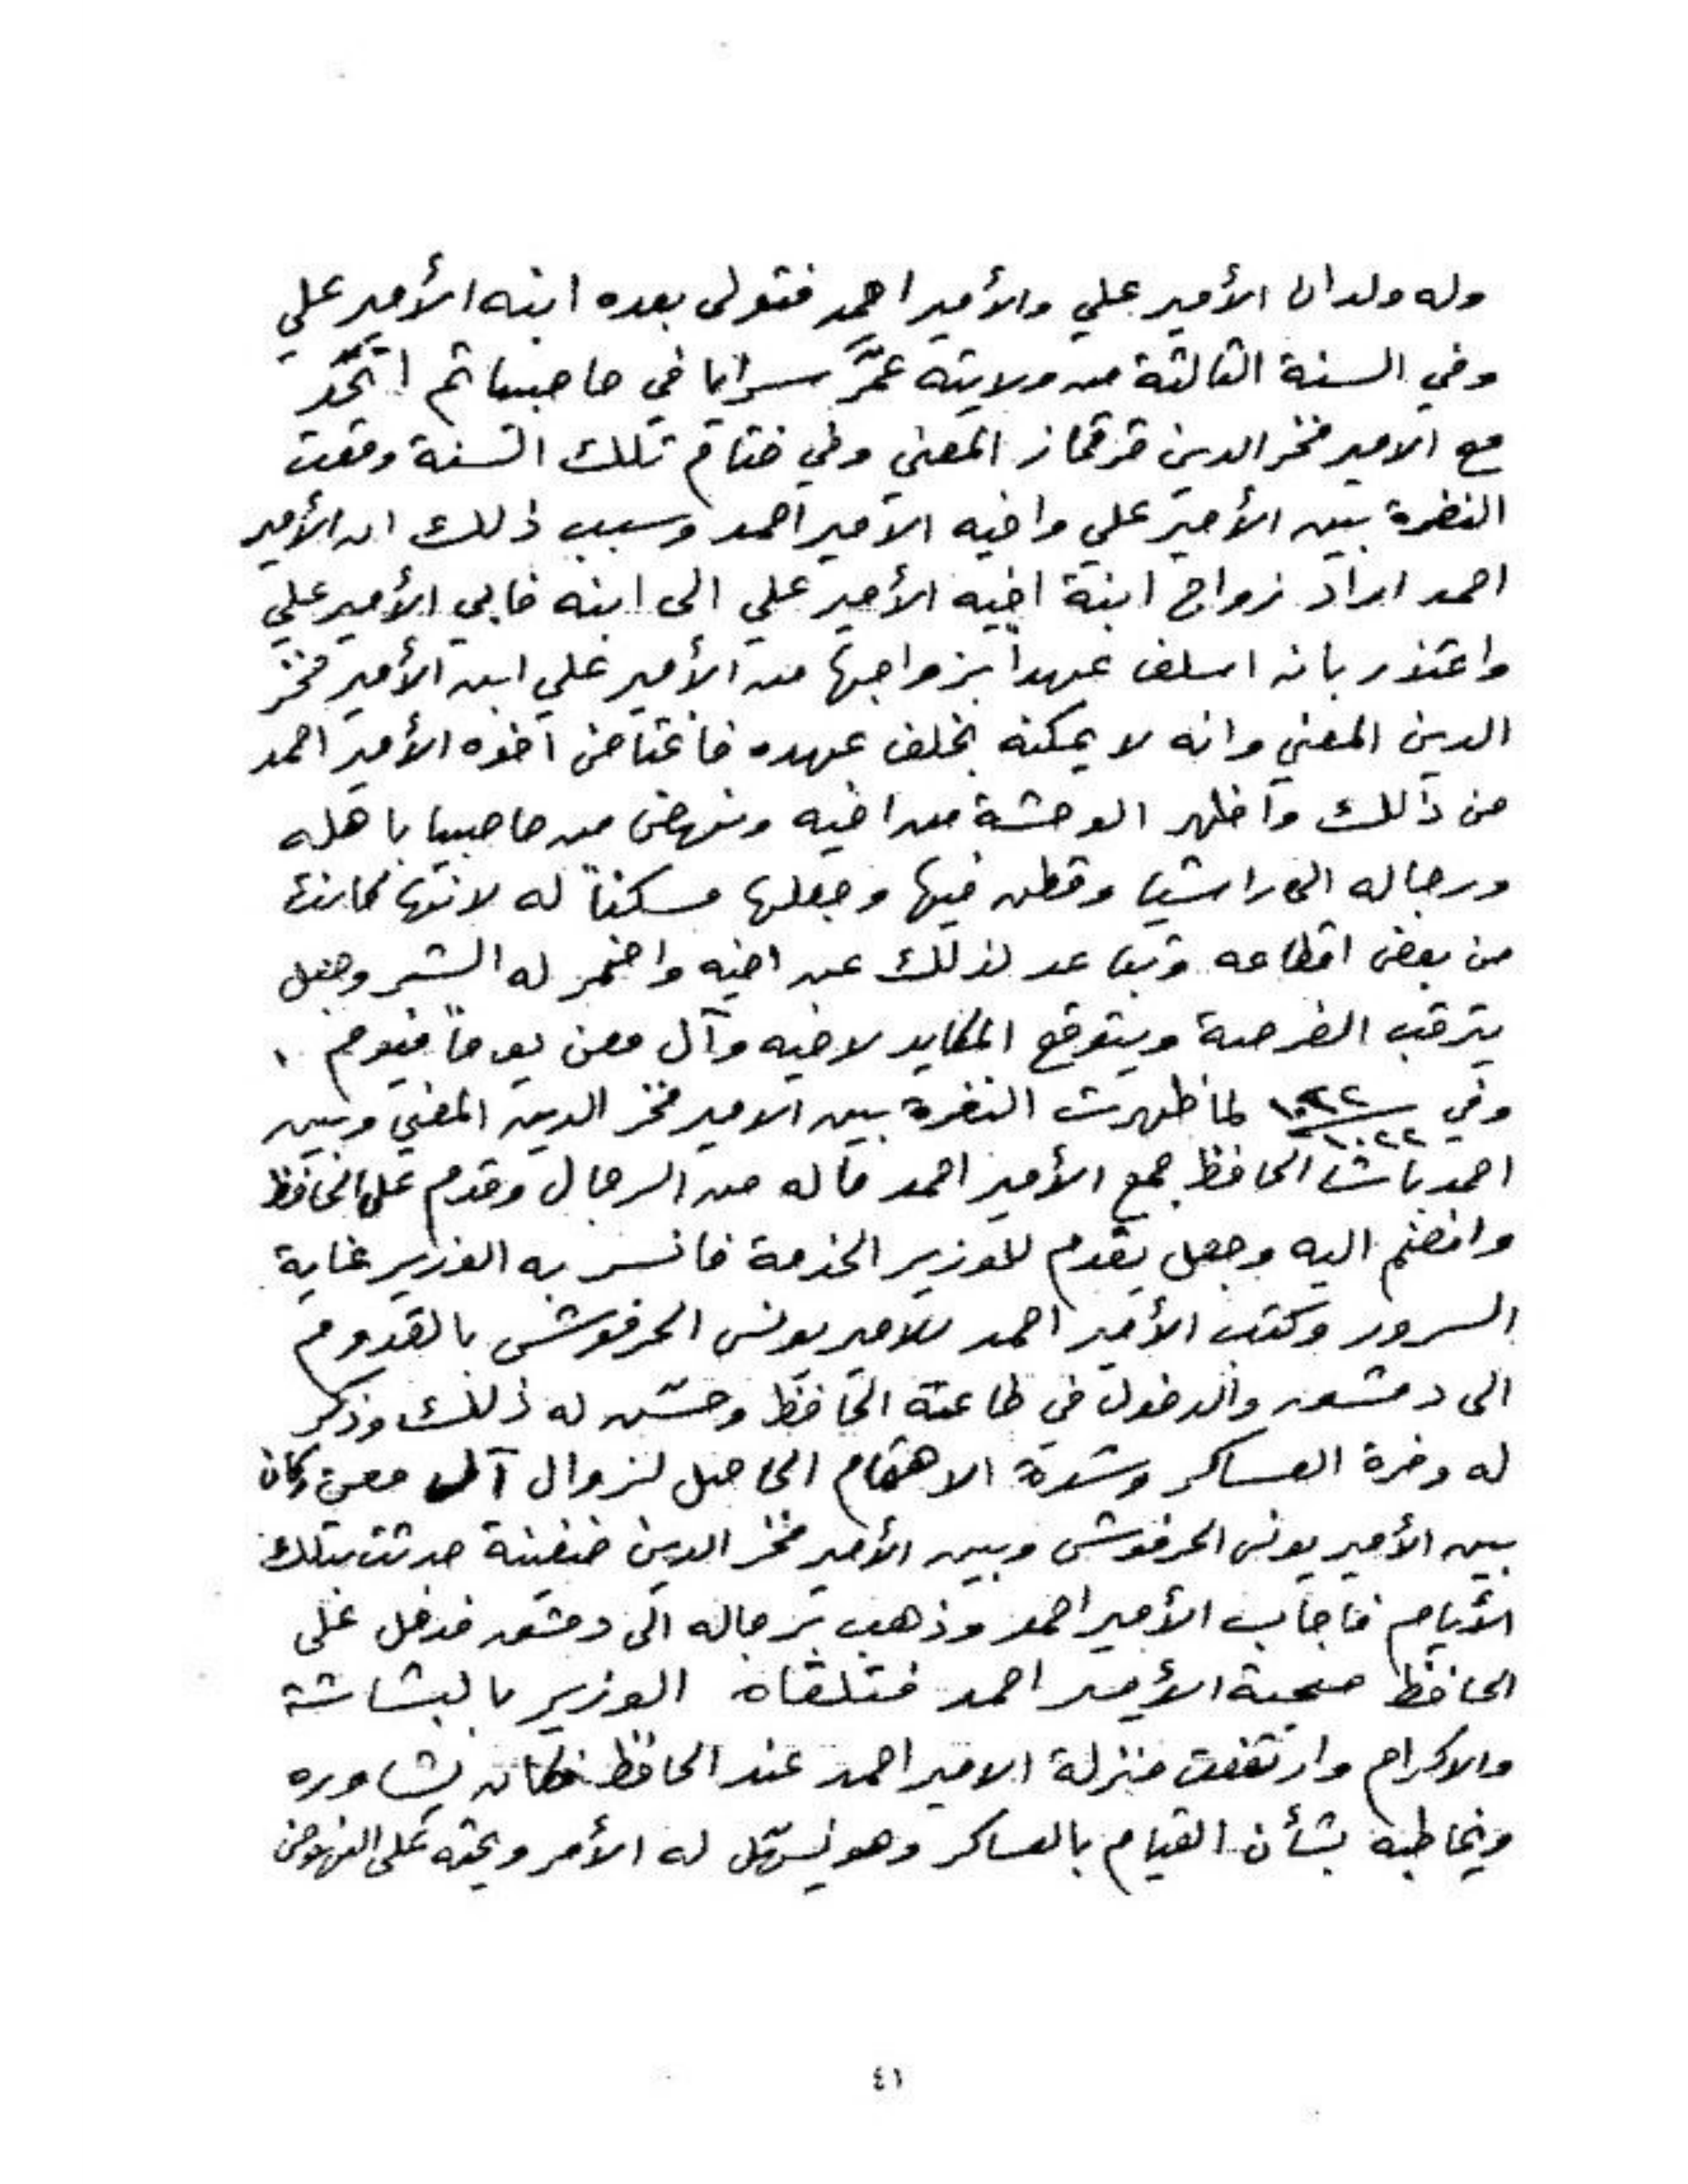 وله ولدان الأمير علي والأمير احمد فتولى بعده ابنه الأمير علي
وفي السنة الثالثة من ولايته عمَّر سرايا في حاصبيا ثم اتحَّد
مع الامير فخر الدين قرقماز المعني وفي ختام تلك السنة وقعت
النفرة بين الأمير علي واخيه الامير احمد وسبب ذلك ان الأمير
احمد اراد زواج ابنة اخيه الأمير علي الى ابنه فابي الأمير علي
واعتذر بانه اسلف عهداً بزواجها من الأمير علي ابن الأمير فخر
الدين المعني وانه لا يمكنه بخلف عهده فاغتاض اخوه الأمير احمد
من ذلك واظهر الوحشة من اخيه ونهض من حاصبيا باهله
ورجاله الى راشيا وقطن فيها وجعلها مسكناً له لانها كانت
من بعض اقطاعه وتباعد لذلك عن اخيه واضمر له الشر وجعل
يترقب الفرصة ويتوقع المكايد لاخيه وآل معن يوماً فيوم ٠
وفي ١٠٢٢ لما ظهرت النفرة بين الامير فخر الدين المعني وبين
١٠٢٢
احمد باشا الحافظ جمع الأمير احمد ماله من الرجال وقدم على الحافظ
وانضم اليه وجعل يقدم للوزير الخدمة فانسر به الوزير غاية
السرور وكتب الأمير احمد للامير يونس الحرفوش بالقدوم
الى دمشق والدخول في طاعة الحافظ وحسّن له ذلك وذكر
له وفرة العساكر وشدة الاهتمام الحاصل لزوال آل معن وكان
بين الأمير يونس الحرفوش وبين الأمير فخر الدين ضغينة حدثت بتلك
الأيام فاجاب الأمير احمد وذهب برجاله الى دمشق فدخل على
الحافظ صحبة الأمير احمد فتلقاه الوزير بالبشاشة
والاكرام وارتفعت منزلة الامير احمد عند الحافظ فكان يشاوره
ويخاطبه بشأن القيام بالعساكر وهو يسهّل له الأمر ويحثه على النهوض
٤١